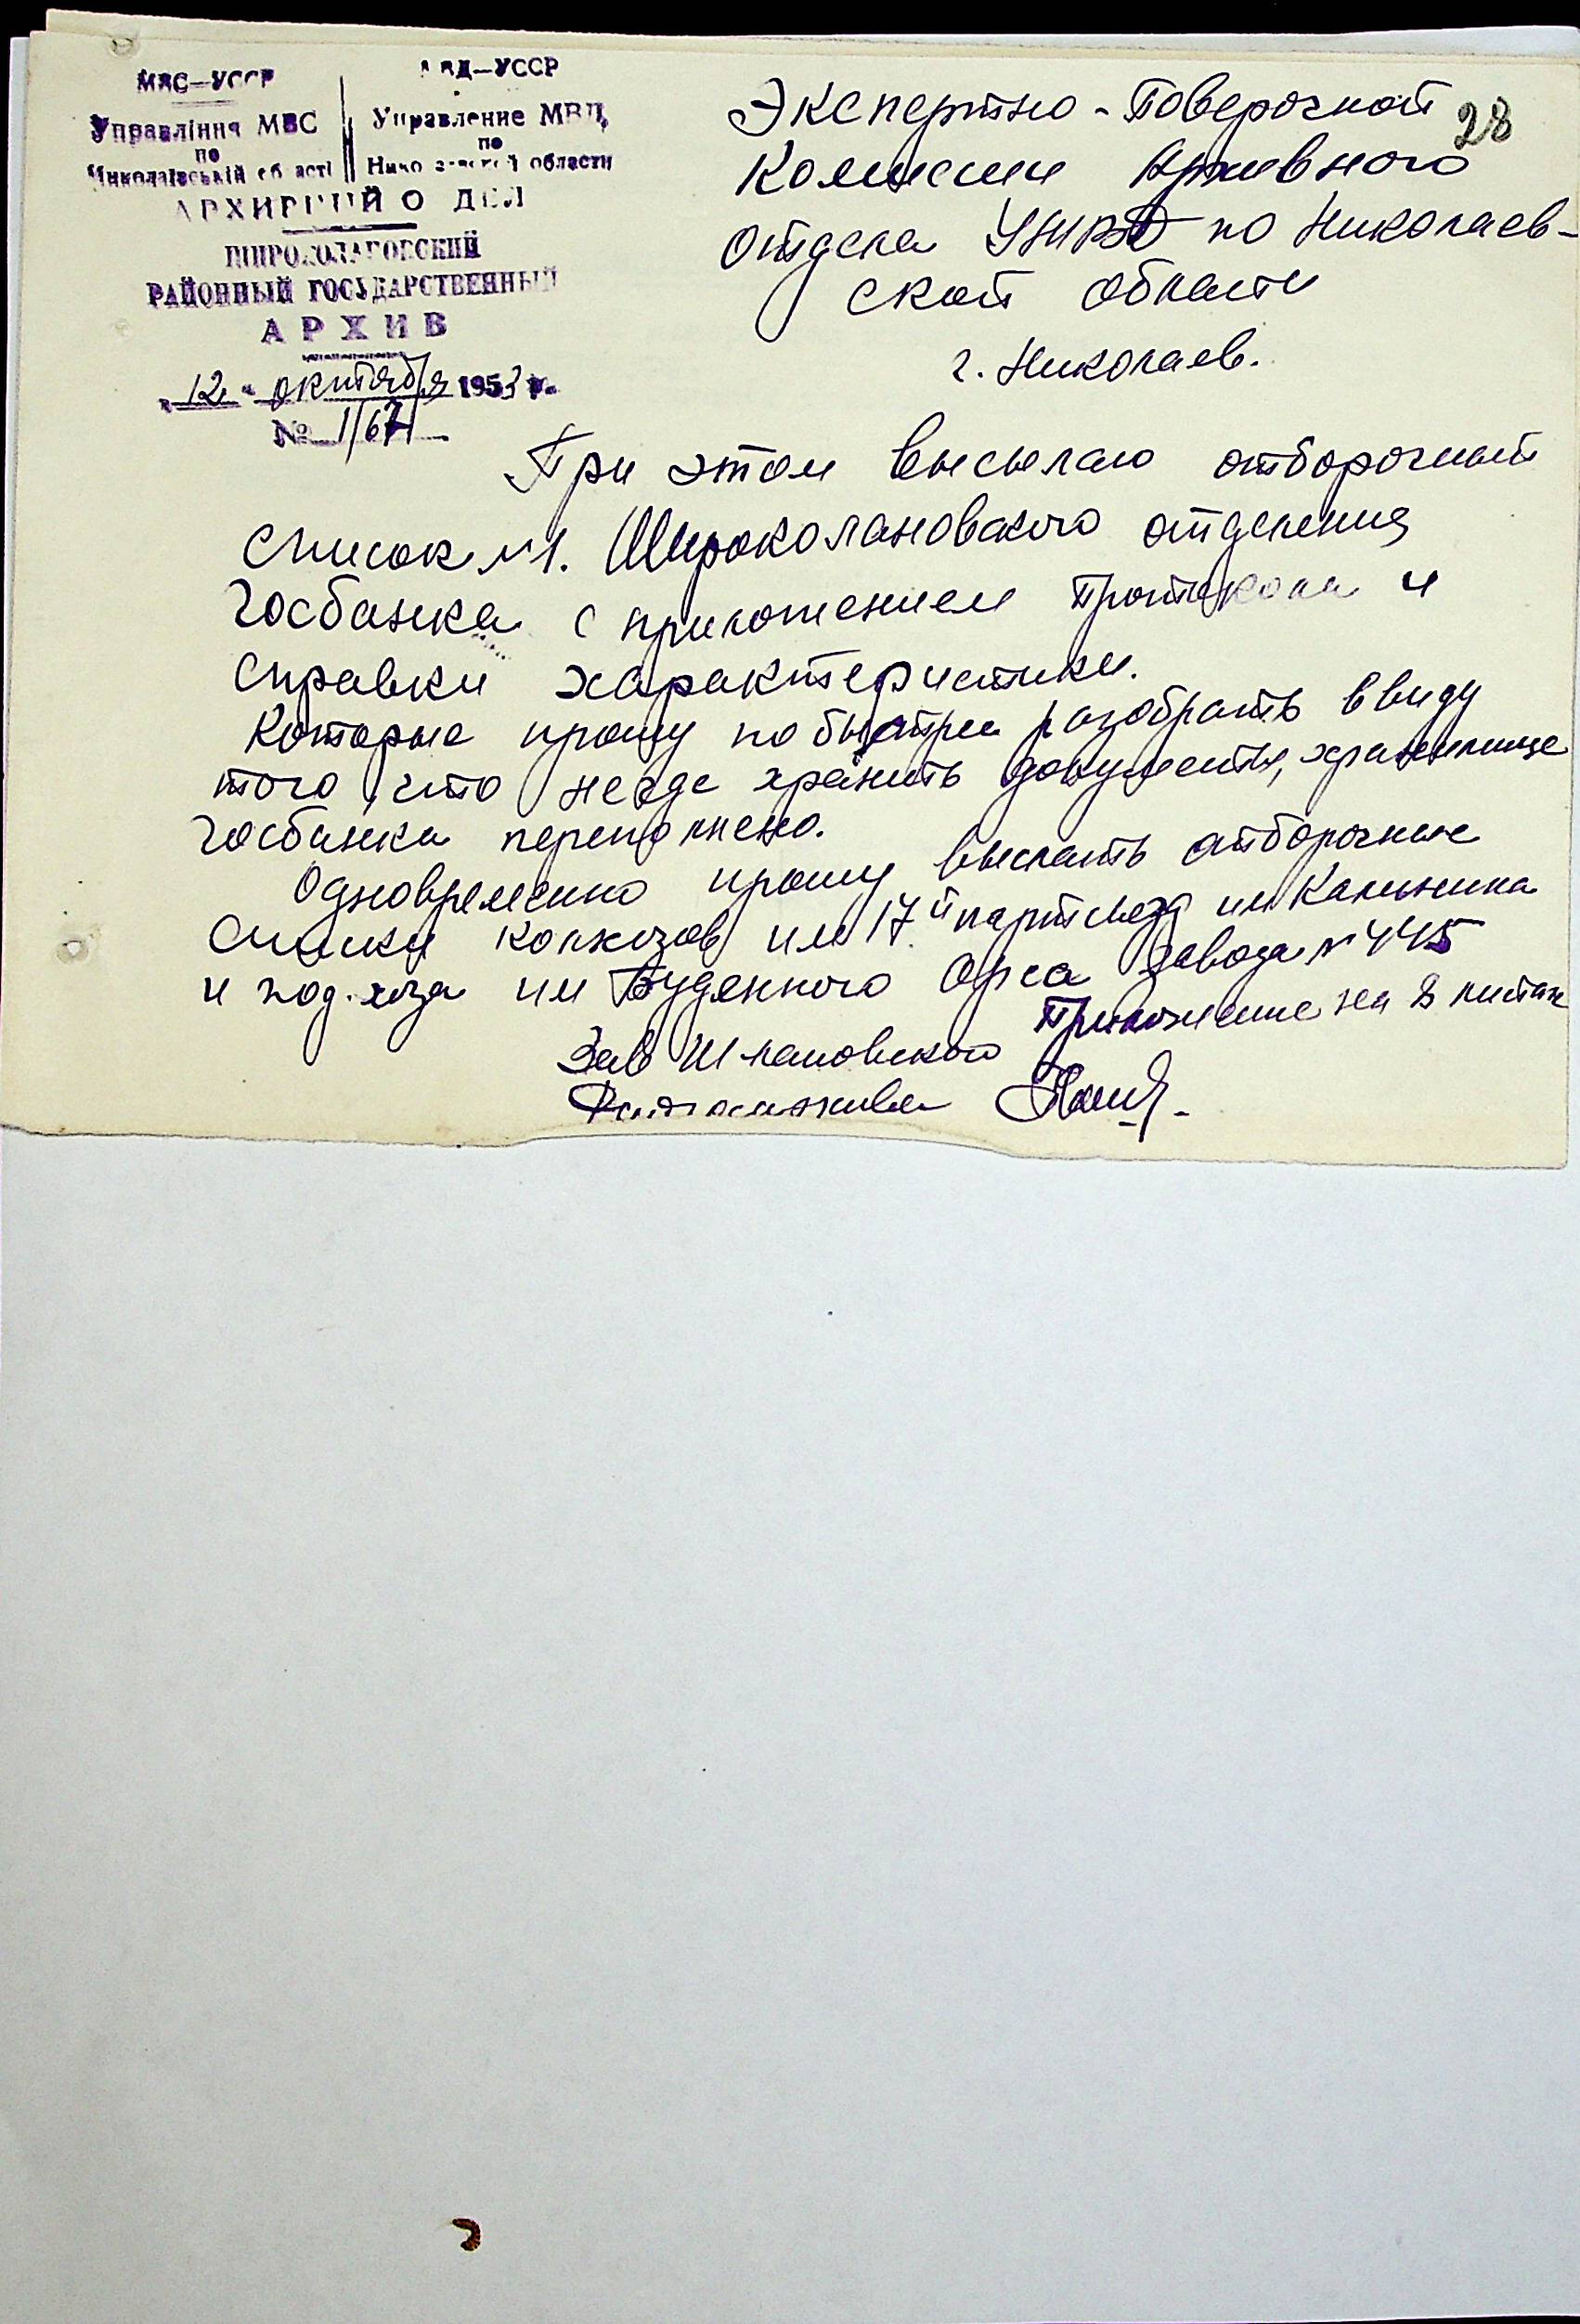 МВС—УССР
Управління МВС
по
Миколаївській області
МВД—УССР
Управление МВД
по
Николаевской области
АРХИВНЫЙ ОТДЕЛ
ШИРОКОЛАНОВСКИЙ
РАЙОННЫЙ ГОСУДАРСТВЕННЫЙ
АРХИВ
„12" октября 1953 г.
№ 1/67
28
Экспертно-Поверочной
Комиссии Архивного
отдела УМВД по Николаев-
ской области
г. Николаев.
При этом высылаю отборочный
список №1. Широколановского отделения
Госбанка с приложением Протокола и
справки характеристики.
Которые прошу побыстрее разобрать ввиду
того, что негде хранить документы, хранилище
Госбанка переполнено.
Одновременно прошу выслать отборочные
списки колхозов им 17й партсъезд им Калинина
и под. хоза им Буденного Орса завода №445
Приложение на 8 листах
Зав Ш лановского
Райгосархива